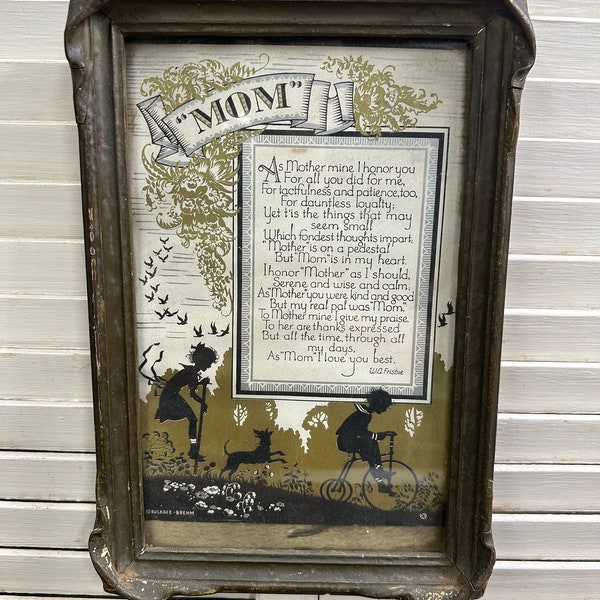 "MOM"
As Mother mine I honor you
For all you did for me,
For tactfulness and patience, too,
For dauntless loyalty;
Yet t'is the things that may
seem small
Which fondest thoughts impart,
"Mother" is on a pedestal
But "Mom" is in my heart.
I honor "Mother" as I should,
Serene and wise and calm;
As "Mother" you were kind and good
But my real pal was "Mom."
To Mother mine I give my praise,
To her are thanks expressed
But all the time, through all
my days,
As "Mom" I love you best.
W.A. Frisbie
© BUCKBEE-BREHM